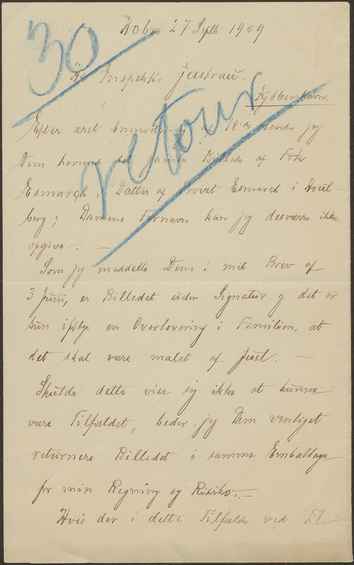 30
27 Septb 1909
Hr Inspektør
Kjøbenhavn
retour
Efter jeg
Dem af Frk
Esmarch, Datter af Provst Esmarch i
berg; Damens Fornavn kan jeg desværre ikke
opgive. —
Som jeg meddelte Dem i mit Brev af
3 Juni, er Billedet uden Signatur og det er
kun ifølge en Overlevering i Familien, at
det skal være malet af Juel. —
Skulde dette vise sig ikke at kunne
være Tilfældet, beder jeg Dem venligst
returnere Billedet i samme Emballage
for min Regning og Risiko. —
Hvis der i dette Tilfælde ved